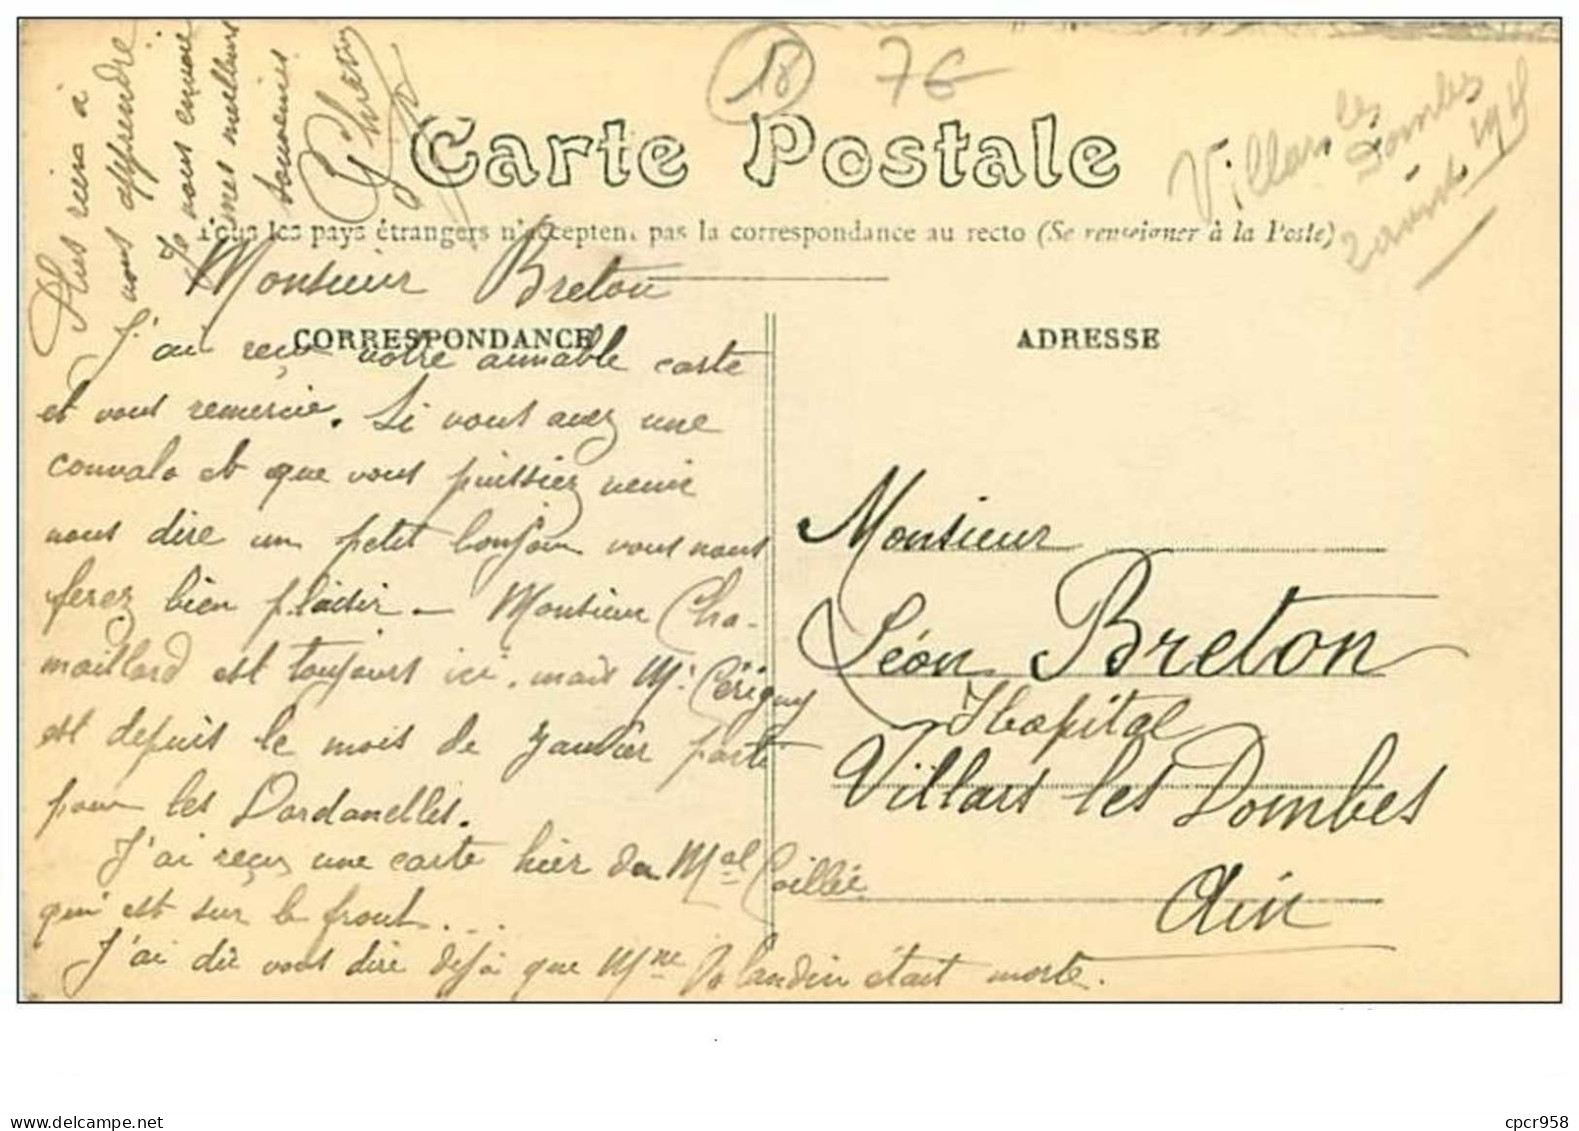 18 76
Villars les
Dombes
2 avril 1915
Carte Postale
Tous les pays étrangers n'acceptent pas la correspondance au recto (Se renseigner à la Poste)
CORRESPONDANCE
ADRESSE
Monsieur Breton
J'ai reçu votre aimable carte
et vous remercie. Si vous avez une
convalo et que vous puissiez venir
nous dire un petit bonjour vous nous
ferez bien plaisir – Monsieur Cha-
maillard est toujours ici, mais Mr Cérigny
est depuis le mois de Janvier parti
pour les Dardanelles.
J'ai reçu une carte hier du Mal Caillée
qui est sur le front...
J'ai dû vous dire déjà que Mme Jolandin était morte.
Plus rien à
vous apprendre
Je vous envoie
mes meilleurs
souvenirs
Monsieur
Léon Breton
Hôpital
Villars les Dombes
Ain
cpcr958